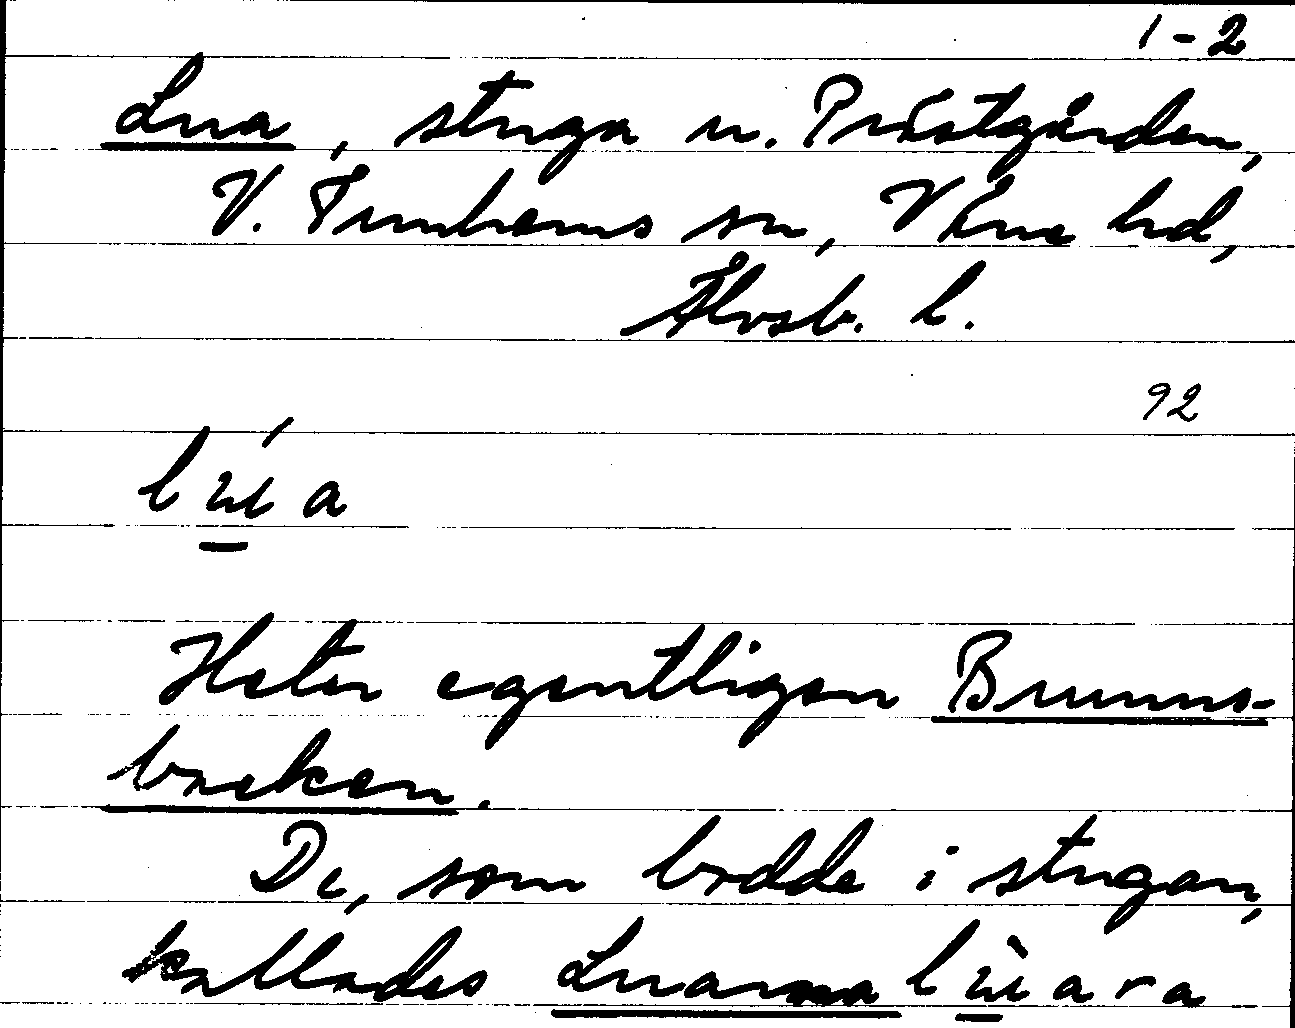 1-2
Lua, stuga u. Prästgården,
V. Tunhems sn, Väne hd,
Älvsb. l.
92
lúa
Heter egentligen Brunns-
backen.
De, som bodde i stugan,
kallades Luarna lùara